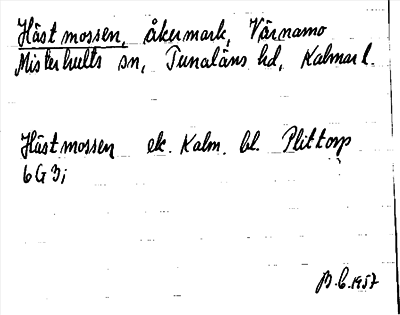 Hästmossen, åkermark, Värnamo
Misterhults sn, Tunaläns hd, Kalmar l.
Hästmossen ek. Kalm. bl. Plittorp
6G3i
B.E. 1957